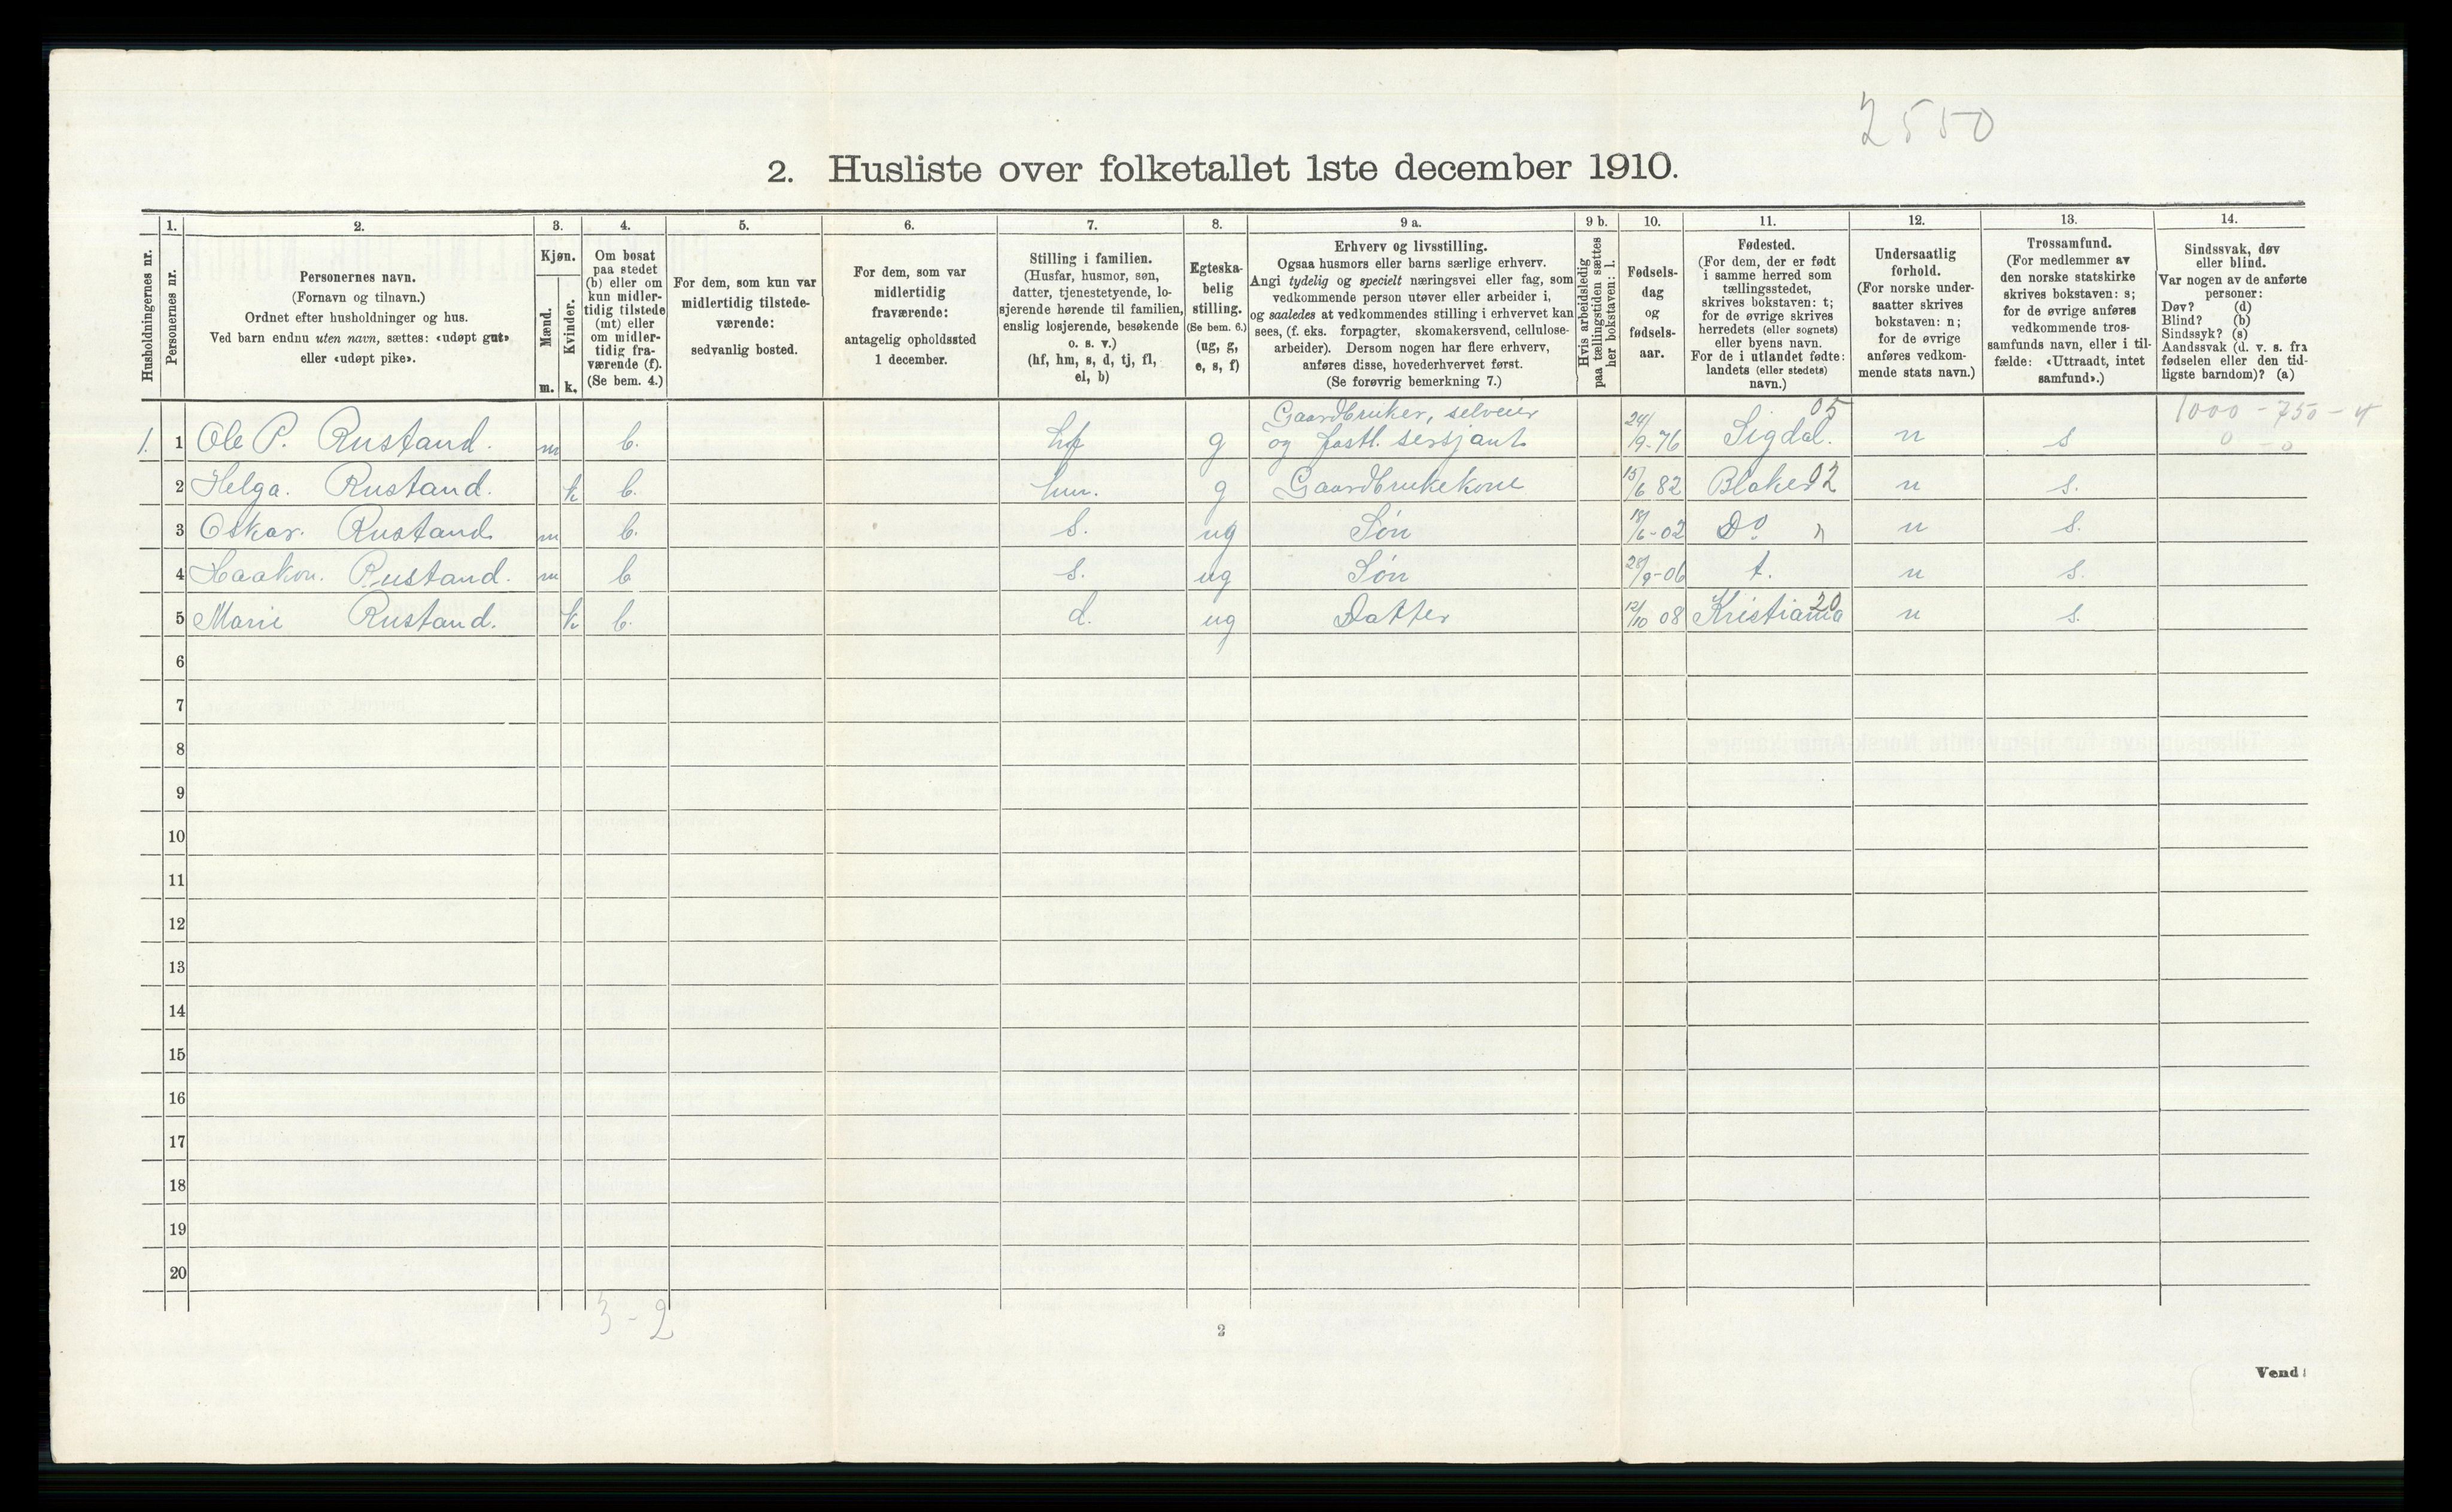 2550
2. Husliste over folketallet 1ste december 1910.
Husholdningernes nr.
1.
Personernes nr.
2.
Personernes navn.
(Fornavn og tilnavn.)
Ordnet efter husholdninger og hus.
Ved barn endnu uten navn, sættes: «udøpt gut»
eller «udøpt pike».
3.
Kjøn.
Mænd.
Kvinder.
m. k.
4.
Om bosat
paa stedet
(b) eller om
kun midler-
tidig tilstede
(mt) eller
om midler-
tidig fra-
værende (f).
(Se bem. 4.)
5.
For dem, som kun var
midlertidig tilstede-
værende:
sedvanlig bosted.
6.
For dem, som var
midlertidig
fraværende:
antagelig opholdssted
1 december.
7.
Stilling i familien.
(Husfar, husmor, søn,
datter, tjenestetyende, lo-
sjerende hørende til familien,
enslig losjerende, besøkende
o. s. v.)
(hf, hm, s, d, tj, fl,
el, b)
8.
Egteska-
belig
stilling.
(Se bem. 6.)
(ug, g,
e, s, f)
9 a.
Erhverv og livsstilling.
Ogsaa husmors eller barns særlige erhverv.
Angi tydelig og specielt næringsvei eller fag, som
vedkommende person utøver eller arbeider i,
og saaledes at vedkommendes stilling i erhvervet kan
sees, (f. eks. forpagter, skomakersvend, cellulose-
arbeider). Dersom nogen har flere erhverv,
anføres disse, hovederhvervet først.
(Se forøvrig bemerkning 7.)
9 b.
Hvis arbeidsledig
paa tællingstiden sættes
her bokstaven: l.
10.
Fødsels-
dag
og
fødsels-
aar.
11.
Fødested.
(For dem, der er født
i samme herred som
tællingsstedet,
skrives bokstaven: t;
for de øvrige skrives
herredets (eller sognets)
eller byens navn.
For de i utlandet fødte:
landets (eller stedets)
navn.)
12.
Undersaatlig
forhold.
(For norske under-
saatter skrives
bokstaven: n;
for de øvrige
anføres vedkom-
mende stats navn.)
13.
Trossamfund.
(For medlemmer av
den norske statskirke
skrives bokstaven: s;
for de øvrige anføres
vedkommende tros-
samfunds navn, eller i til-
fælde: «Uttraadt, intet
samfund».)
14.
Sindssvak, døv
eller blind.
Var nogen av de anførte
personer:
Døv? (d)
Blind? (b)
Sindssyk? (s)
Aandssvak (d. v. s. fra
fødselen eller den tid-
ligste barndom)? (a)
1. 1 Ole P. Rustand. m b. hf g Gaardbruker, selveier og fastl. sersjant 24/9-76 Sigdal. 05 n s 1000 - 750 - 4
0 - 0
2 Helga. Rustand. k b. hm. g Gaardbrukekone 15/6 82 Blaker 02 n s.
3 Oskar. Rustand m b. s. ug Søn 18/6-02 Do " n s.
4 Haakon. Rustand. m b s. ug Søn 28/9-06 t. n s.
5 Marie Rustand. k b. d. ug Datter 12/10 08 Kristiania 20 n s.
6
7
8
9
10
11
12
13
14
15
16
17
18
19
20
3 - 2
2
Vend!